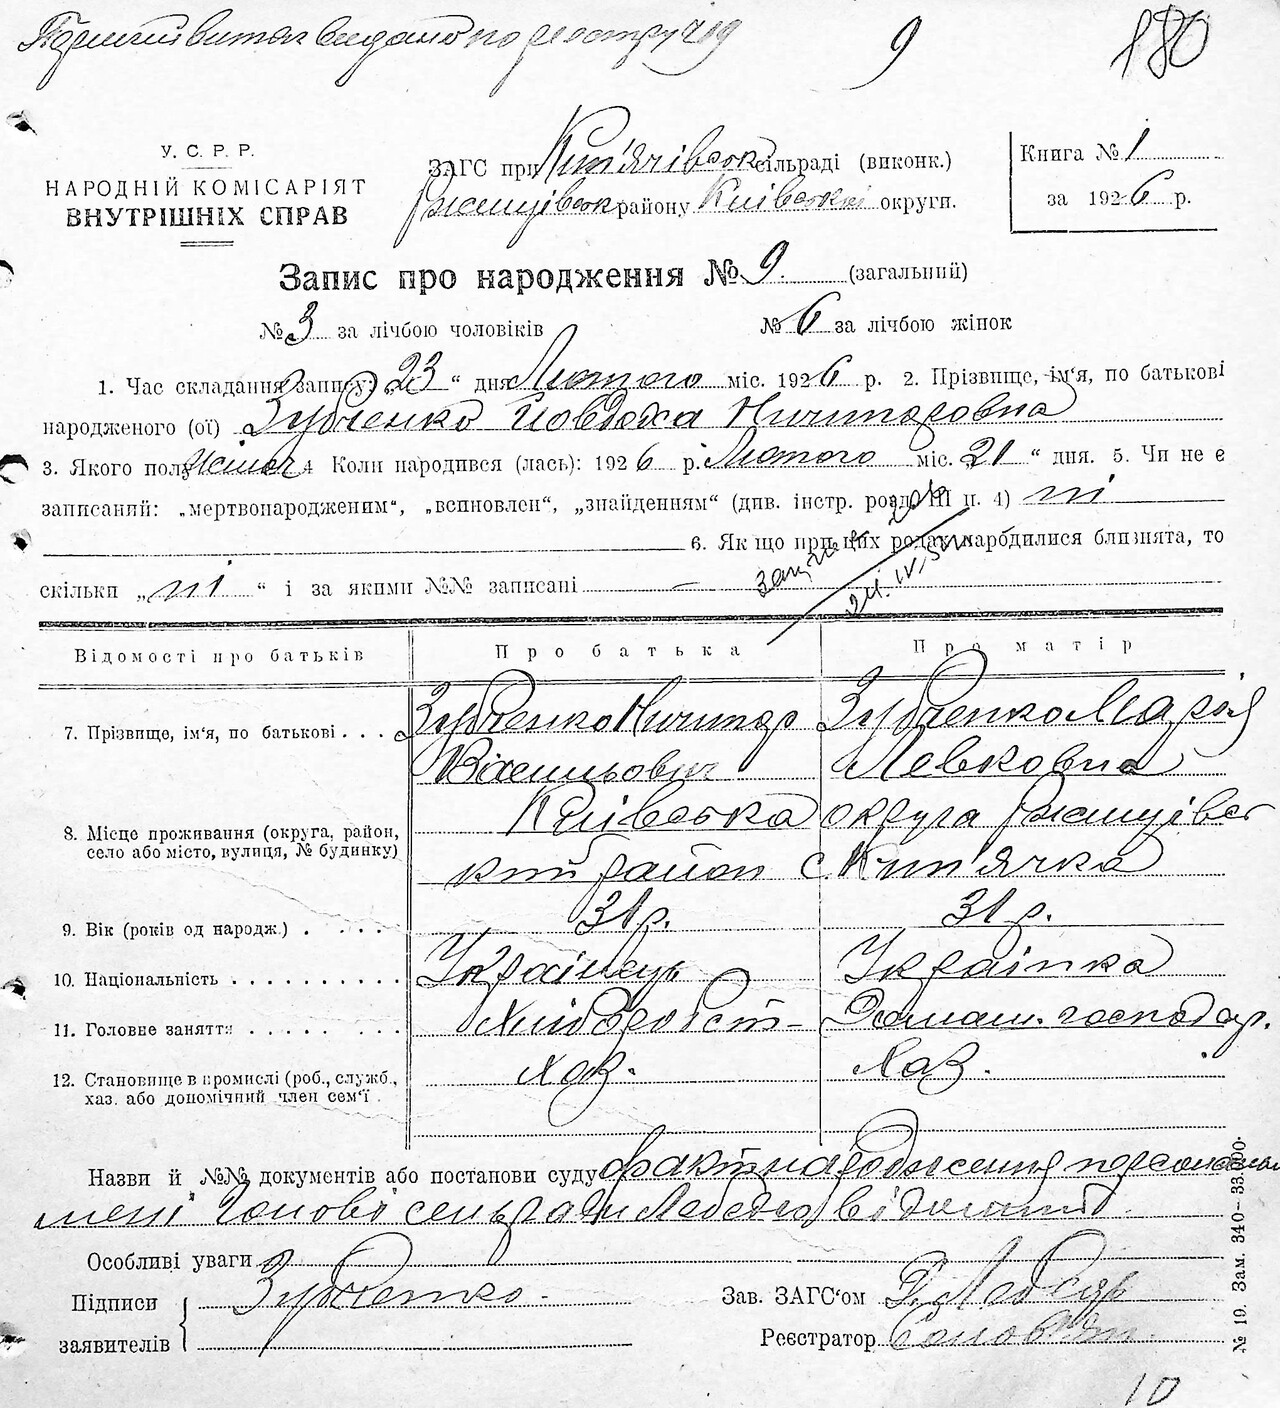 Первий витяг видано по реєстру 419
9
180
У. С. Р. Р.
НАРОДНІЙ КОМІСАРІЯТ
ВНУТРІШНІХ СПРАВ
ЗАГС при Кип'ячівськ сільраді (виконк.)
Ржищівськ району Київської округи.
Книга № 1
за 1926 р.
Запис про народження № 9. (загальний)
№ 3 за лічбою чоловіків № 6 за лічбою жінок
1. Час складання запису: „23“ дня Лютого міс. 1926 р. 2. Прізвище, ім'я, по батькові
народженого (ої) Зубченко Йовдоха Ничипоровна
3. Якого полу жіноч 4 Коли народився (лась): 1926 р. Лютого міс. 21“ дня. 5. Чи не є
записаний: „мертвонародженим“, „всиновлен“, „знайденням“ (див. інстр. розд. III п. 4) ні
6. Як що при цих родах народилися близнята, то
скільки „ні“ і за якими №№ записані —
Відомості про батьків Про батька Про матір
7. Прізвище, ім'я, по батькові . . . Зубченко Ничипор Зубченко Марія
Васильович Левковна
8. Місце проживання (округа, район,
село або місто, вулиця, № будинку)
Київська округа Ржищівсь
кий район с. Кип'ячка
9. Вік (років од народж.) . . . . 31 р. 31 р.
10. Національність . . . . . . . . . . Українець Українка
11. Головне заняття . . . . . . . . Хлібороб ст- Домаш. господар.
12. Становище в промислі (роб., служб.,
хаз. або допомічний член сем'ї .
Хаз. Хаз.
Назви й №№ документів або постанови суду факт народження
мені голові сельради Лебедю відомий
Особливі уваги
Підписи
заявителів
Зубченко
Зав. ЗАГС'ом Лебедь
Реєстратор
№ 19. Зам. 340—33.000.
10